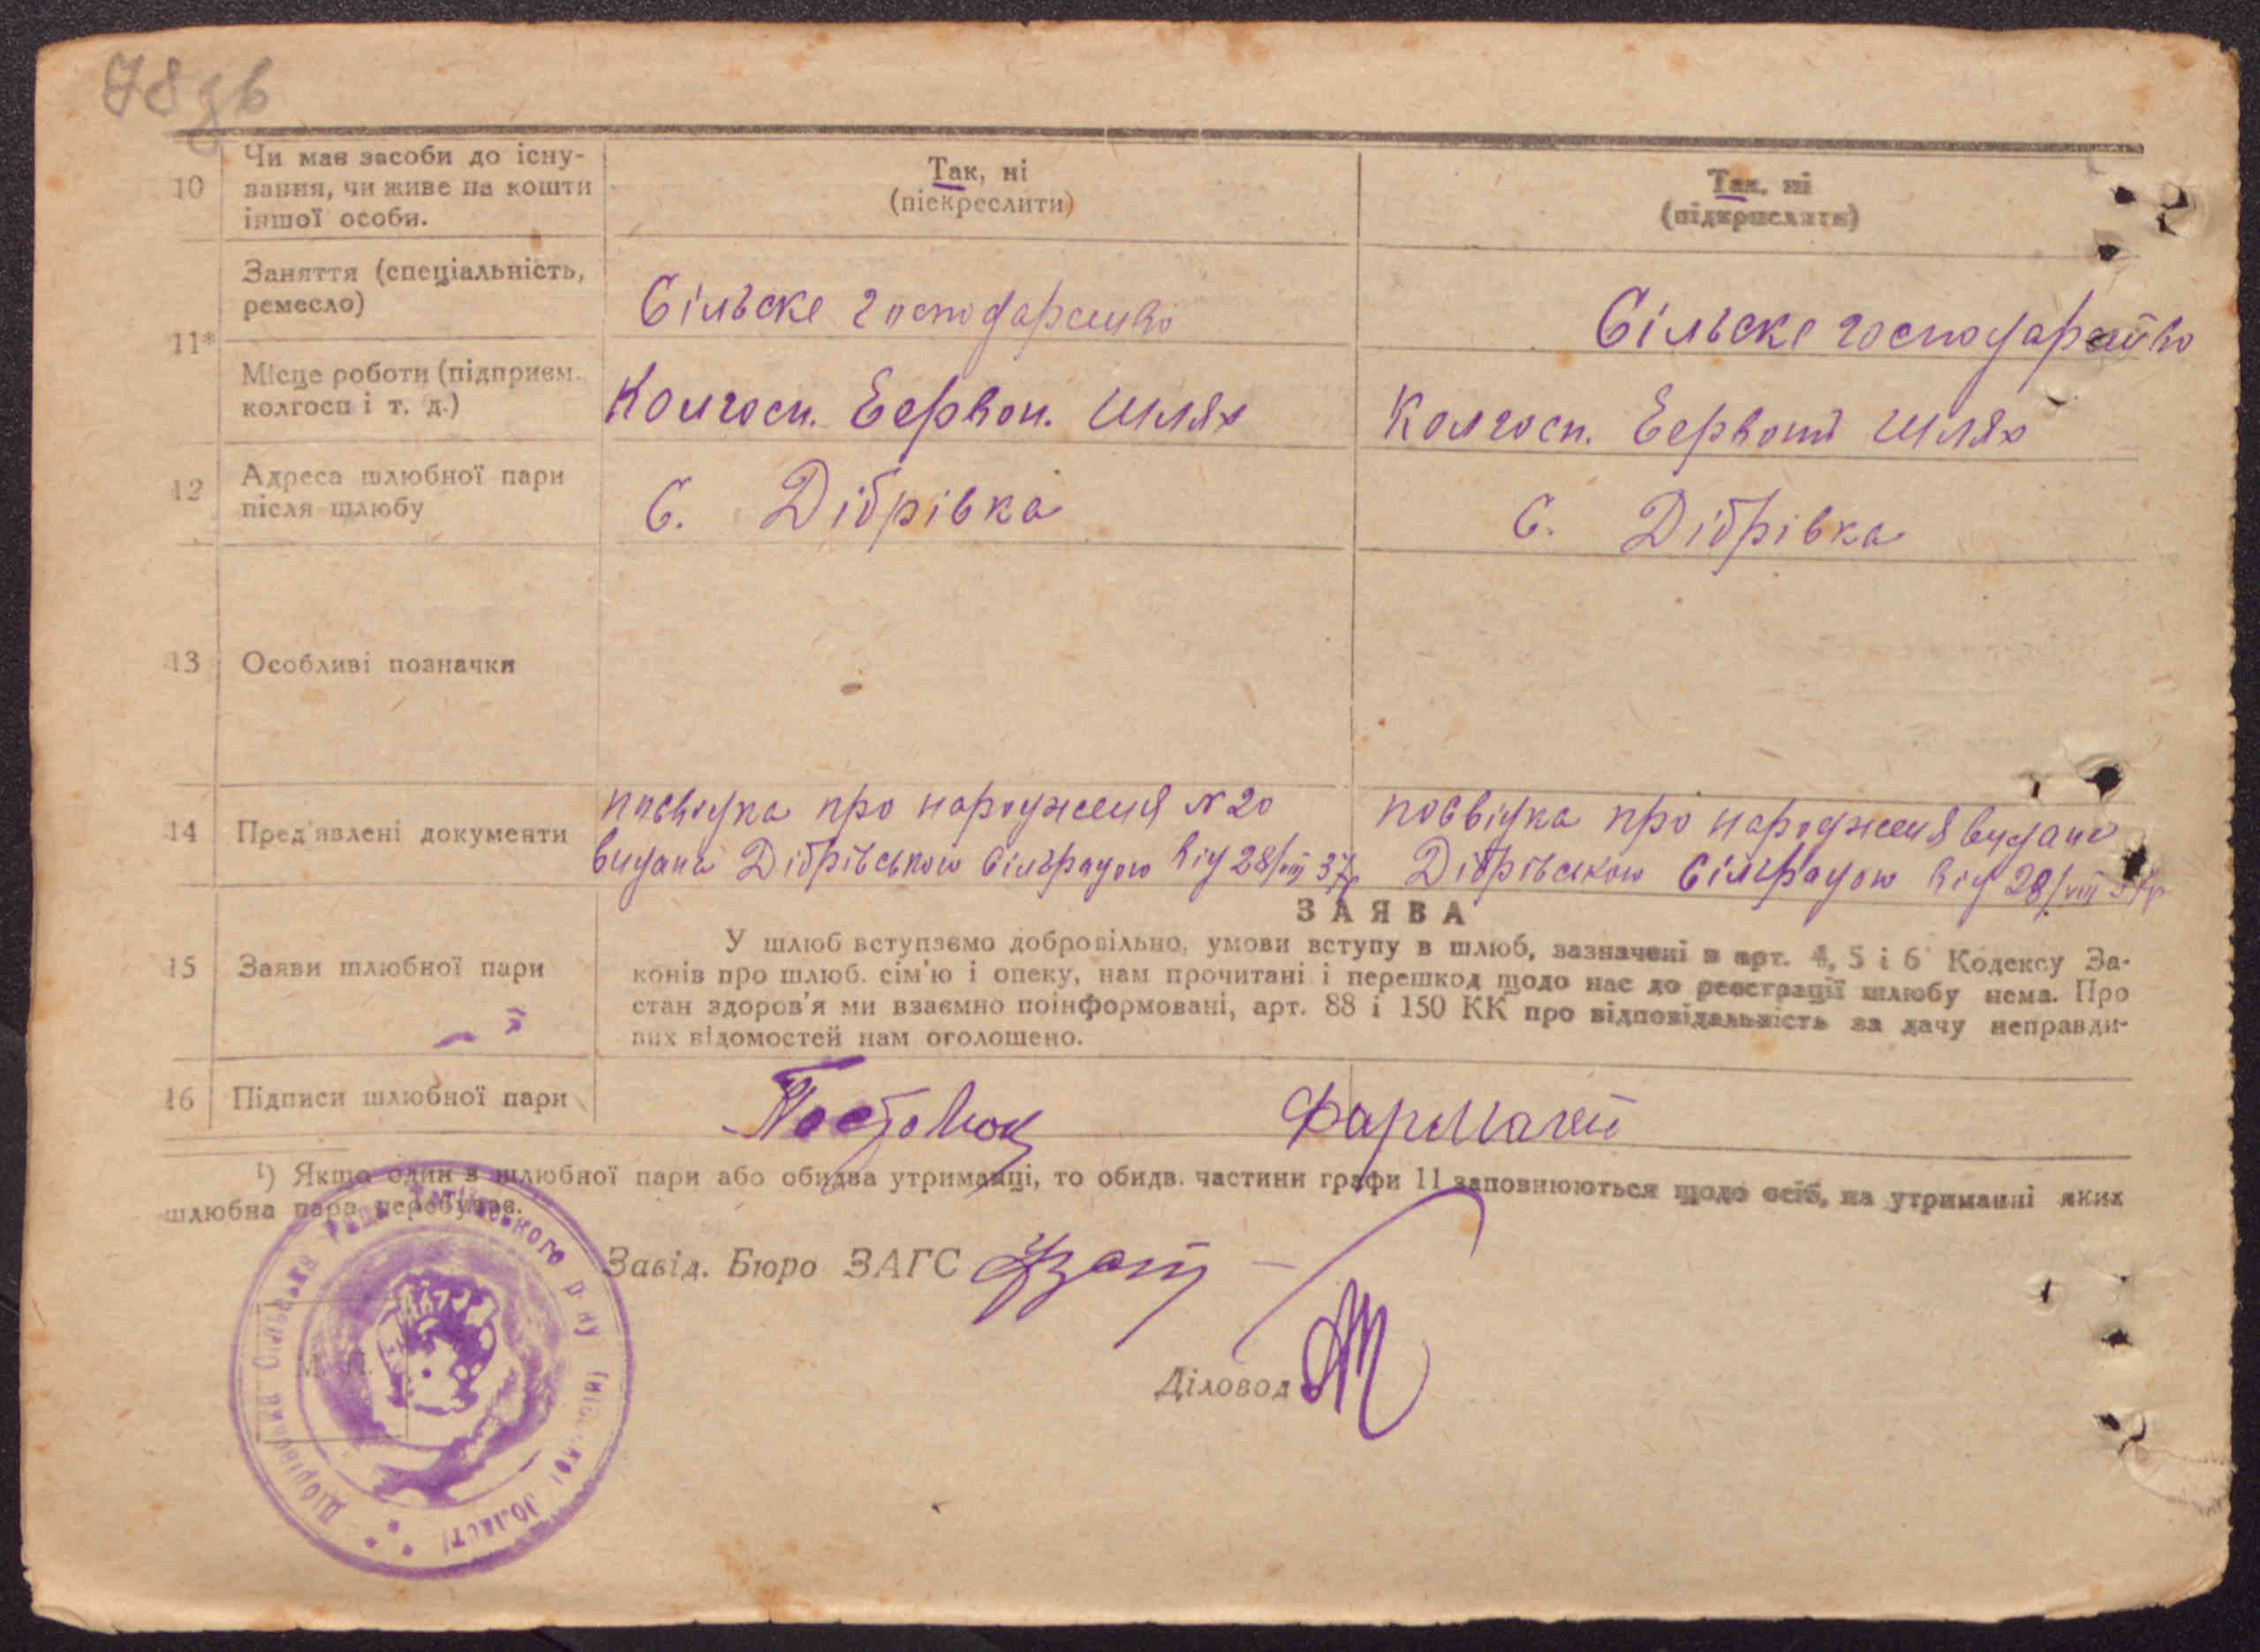 78 зв
10 Чи має засоби до існу-
вання, чи живе на кошти
іншої особи.
Так, ні
(піекреслити)
Так, ні
(підкреслити)
11*
Заняття (спеціальність,
ремесло)
Сільске господарство
Сільске господарство
Місце роботи (підприєм.
колгосп і т. д.)
Колгосп. Червон. Шлях
Колгосп. Червоний Шлях
12 Адреса шлюбної пари
після шлюбу
С. Дібрівка
С. Дібрівка
13 Особливі позначки
14 Пред'явлені документи
посвідка про народження № 20
видана Дібрівською сільрадою від 28/VIII 37р
посвідка про народження видана
Дібрівською сільрадою від 28/VIII 37р
15 Заяви шлюбної пари
ЗАЯВА
У шлюб вступаємо добровільно, умови вступу в шлюб, зазначені в арт. 4, 5 і 6 Кодексу За-
конів про шлюб. сім'ю і опеку, нам прочитані і перешкод щодо нас до реєстрації шлюбу нема. Про
стан здоров'я ми взаємно поінформовані, арт. 88 і 150 КК про відповідальність за дачу неправди-
вих відомостей нам оголошено.
16 Підписи шлюбної пари
¹) Якщо один з шлюбної пари або обидва утриманці, то обидв. частини графи 11 заповнюються щодо осіб, на утриманні яких
шлюбна пара перебуває.
Завід. Бюро ЗАГС
М. П.
Діловод
Дібрівська Сільська Рада р ну області